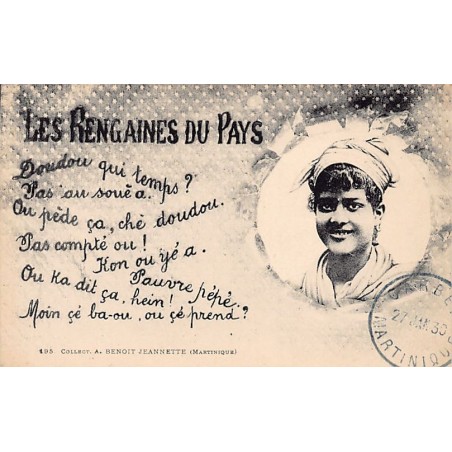 LES RENGAINES DU PAYS
Doudou qui temps?
Pas au souè a.
Ou pède ça, chè doudou.
Pas compté ou!
Kon ou yé a.
Ou ka dit Pauvre pépé.
ça, hein!
Moin çé ba-ou, ou çé prend?
195 COLLECT. A. BENOIT JEANNETTE (MARTINIQUE)
MARTINIQUE